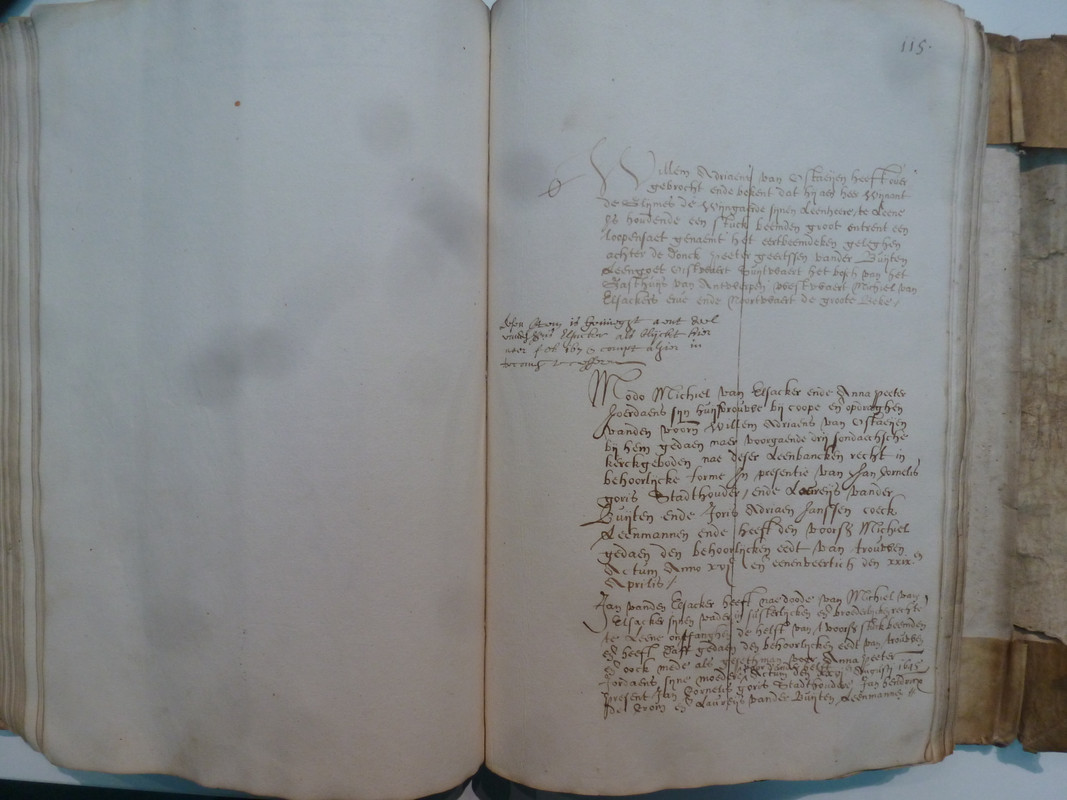 115.
Willem Adriaens van Ostaeyen heeft over
gebrocht ende bekent dat hij aen heer Wijnant
de Wijngarde sijnen Leenheere, te Leene
is houdende een stuck beemden groot ontrent een
loopensaet genaemt het eertbeemdeken geleghen
achter de Donck Peeter geertssen vander Buijten
Leengoet Oistwaert Zuijtwaert het van het
Gasthuijs van Antwerpen westwaert Michiel van
Elsackers erve ende Noortwaert de groote Beke.
deel
als blijckt hier
naer fol. 167
Modo Michiel van Elsacker ende Anna Peeter
Joerdaens sijn huijsvrouwe bij coope en opdraghen
vanden voorn Willem Adriaens van Ostaeijen
bij hem gedaen naer voorgaende drij sondaechsche
kerckgeboden nae deser Leenbancken recht in
behoorlijcke forme In presentie van Jan Cornelis
goris Stadthouder, ende Laureijs vander
Buijten ende Joris Adriaen Janssen coeck
Leenmannen ende heeft den voors Michiel
gedaen den behoorlijcken eedt van trouwen
Actum Anno en eenenveertich den xxix en
Aprilis /
Jan vanden Elsacker heeft nae doode van Michiel van
Elsacker sijnen vader in susterlijcken en broederlijcke rechte
te Leene ontfanghen de helft van t voors stuck beemden
en heeft daer gedaen den behoorlijcken eedt van trouwen
en oock mede als voor Anna Peeter
Jordaens sijne moeder Actum den Augusti 1645
present Jan Cornelis goris Stadthouder, Jan hendricx
de Crom en Laureijs vander Buijten Leenmannen